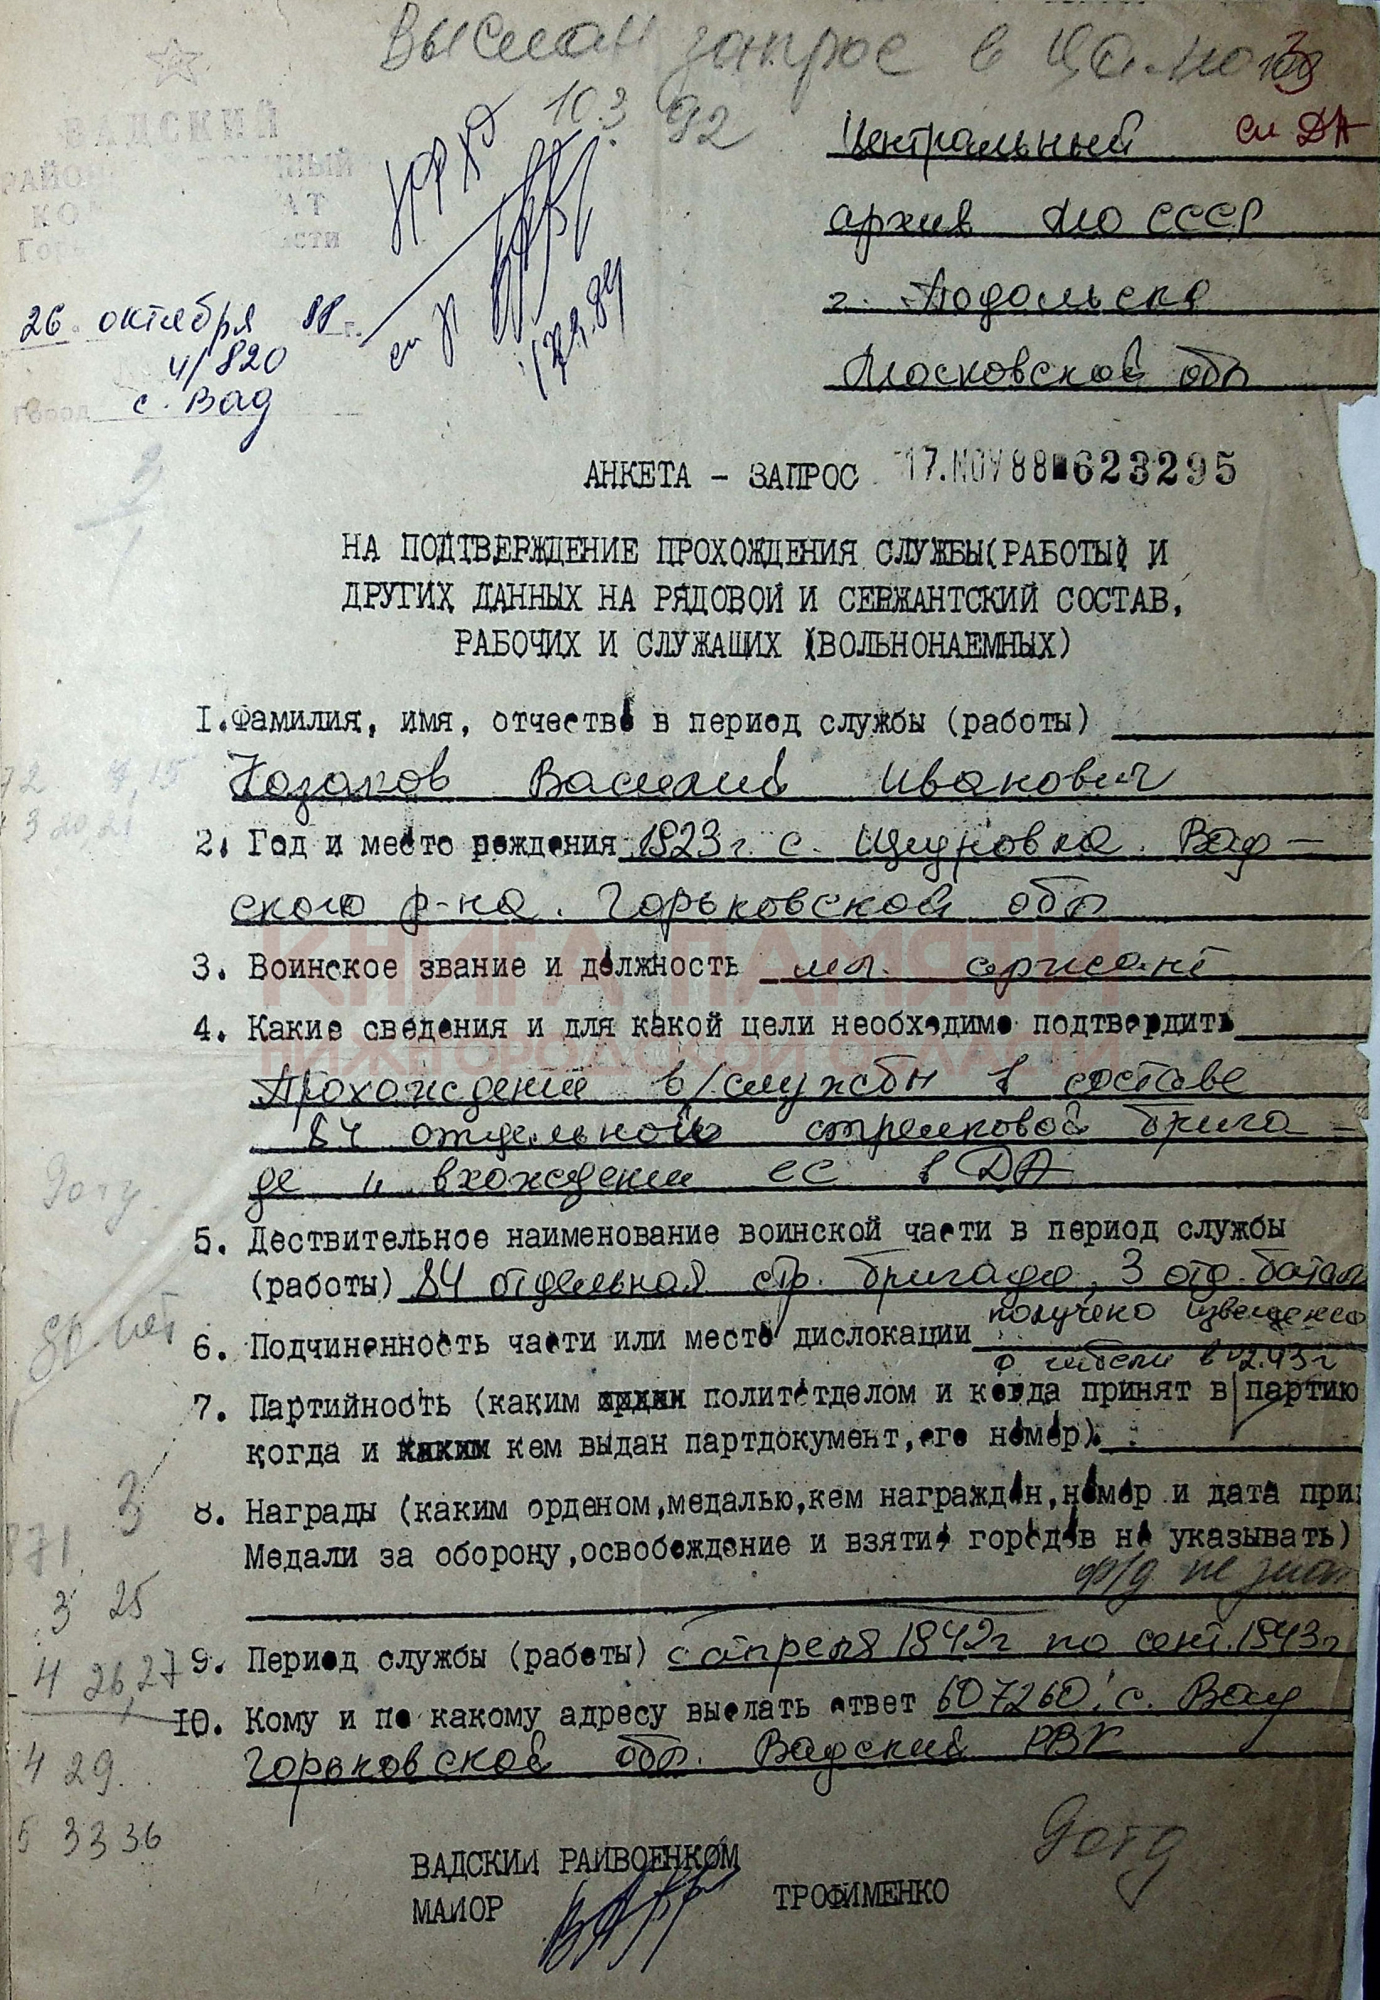 Выслан запрос в ЦА МО
10.3.92
см ДА
ВАДСКИЙ
РАЙОННЫЙ
26 октября 88 г.
4/820
город с. Вад
Центральный
архив МО СССР
г. Подольска
Московской обл
АНКЕТА - ЗАПРОС 17.NOV88 623295
НА ПОДТВЕРЖДЕНИЕ ПРОХОЖДЕНИЯ СЛУЖБЫ(РАБОТЫ) И
ДРУГИХ ДАННЫХ НА РЯДОВОЙ И СЕРЖАНТСКИЙ СОСТАВ,
РАБОЧИХ И СЛУЖАЩИХ (ВОЛЬНОНАЕМНЫХ)
I. Фамилия, имя, отчество в период службы (работы)
Козаков Василий Иванович
2. Год и место рождения 1923г. с. Щедровка Вад-
ского р-на. Горьковской обл
3. Воинское звание и должность мл. сержант
4. Какие сведения и для какой цели необходимо подтвердить
Прохождении в/службы в составе
84 отдельной стрелковой брига-
де и вхождении ее в ДА
5. Дествительное наименование воинской части в период службы
(работы) 84 отдельная стр. бригада, 3 отд. батал
6. Подчиненность части или место дислокации получено извещение
о гибели в 42.43г
7. Партийность (каким политотделом и когда принят в партию
когда и кем выдан партдокумент, его номер).
8. Награды (каким орденом,медалью,кем награжден,номер и дата при
Медали за оборону,освобождение и взятие городов не указывать)
не знач
9. Период службы (работы) с апреля 1942г по сент. 1943г
10. Кому и по какому адресу выслать ответ 607260: с. Вад
Горьковской обл. Вадский РВК
ВАДСКИЙ РАЙВОЕНКОМ
МАЙОР ТРОФИМЕНКО
9отд
3
3 25
4 26,27
4 29
5 33 36
КНИГА ПАМЯТИ
НИЖЕГОРОДСКОЙ ОБЛАСТИ